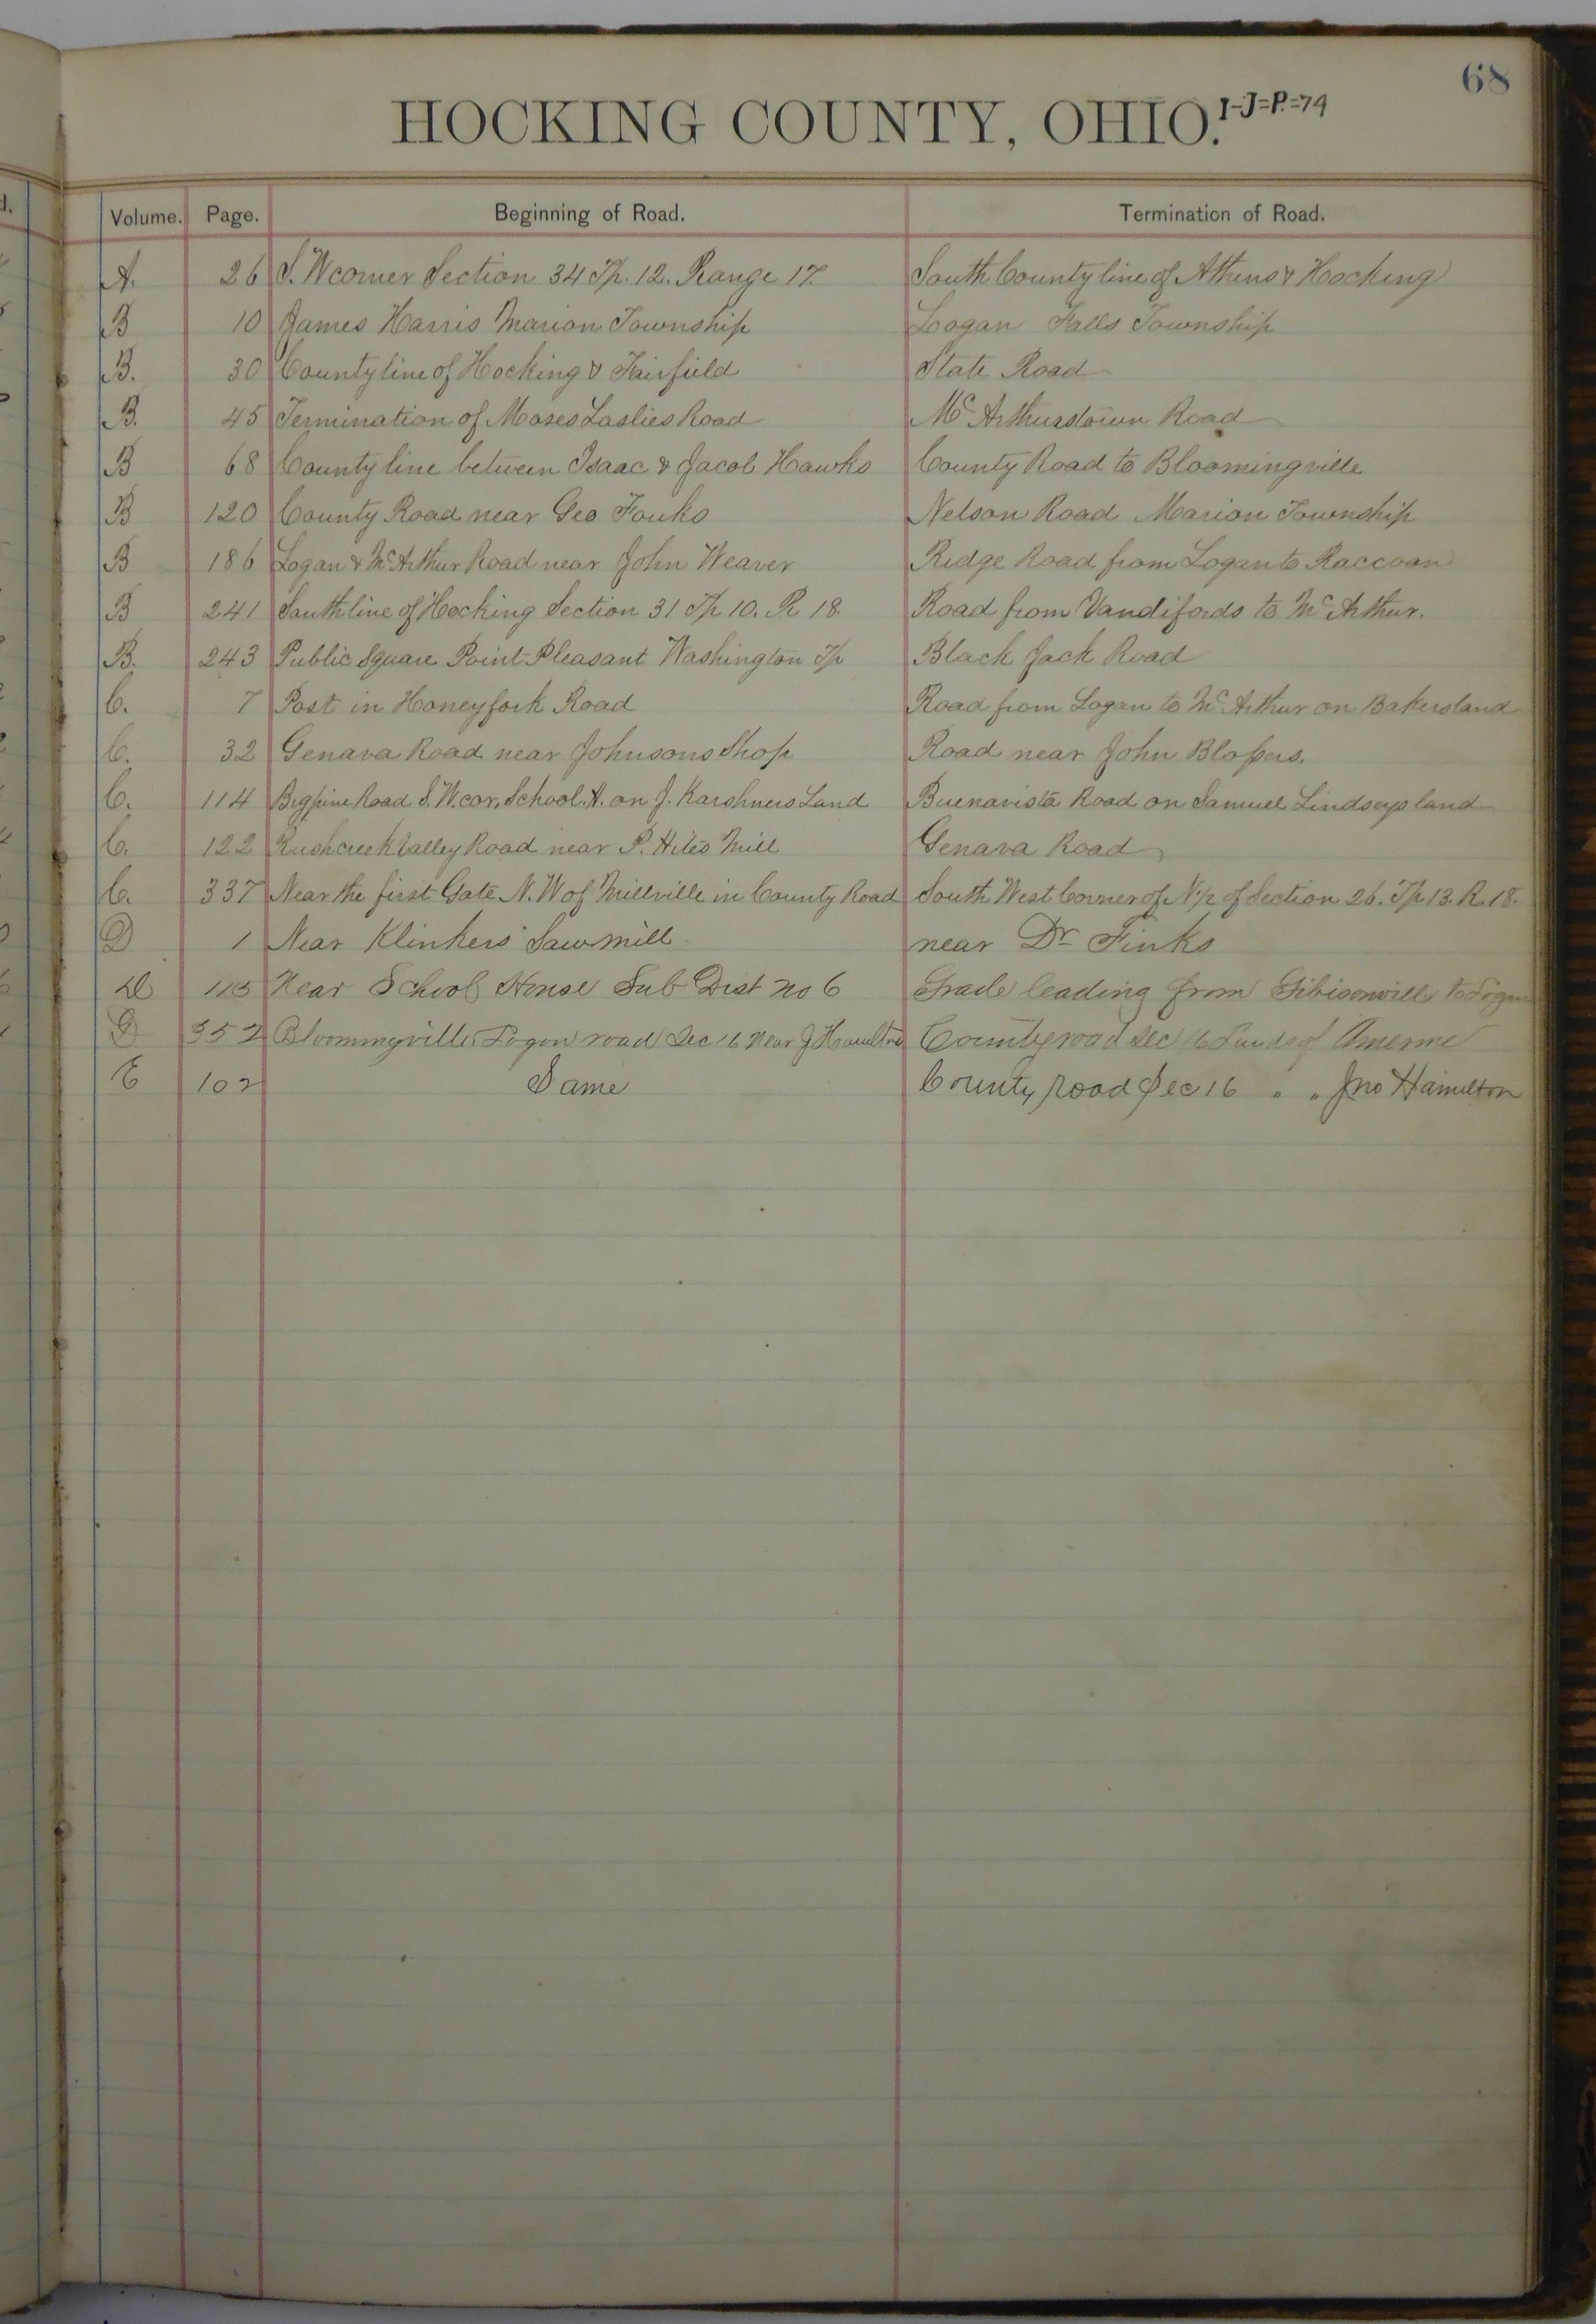 68
HOCKING COUNTY, OHIO. I-J=P.=74
Volume. Page. Beginning of Road. Termination of Road.
A. 26 S. W corner Section 34 Tp. 12. Range 17. South County line of Athens & Hocking
B 10 James Harris Marion Township Logan Falls Township
B. 30 County line of Hocking & Fairfield State Road
B. 45 Termination of Moses Laslies Road Mc Arthurstown Road
B 68 County line between Isaac & Jacob Hawks County Road to Bloomingville
B 120 County Road near Geo Fouks Nelson Road Marion Township
B 186 Logan & McArthur Road near John Weaver Ridge Road from Logan to Raccoon
B 241 South line of Hocking Section 31 Tp 10. R 18. Road from Vandifords to McArthur.
B. 243 Public Square Point Pleasant Washington Tp Black Jack Road
C. 7 Post in Honeyfork Road Road from Logan to McArthur on Bakersland
C. 32 Genava Road near Johnsons Shop Road near John Blossers.
C. 114 Bigpine Road S. W. cor. School. H. on J. Karshners Land Buenavista Road on Samuel Lindseys land
C. 122 Rushcreek Valley Road near P. Hites Mill Genava Road
C. 337 Near the first Gate N. W of Millville in County Road South West Corner of N 1/2 of Section 26. Tp 13. R. 18.
D 1 Near Klinkers Sawmill near Dr Finks
D Near School House Sub Dist no 6 Grade leading from Gibisonville to Logan
D 352 Bloomingville Logan road Sec 16 Near J Hamilton County road Sec 16 Lands of
E 102 Same County road Sec 16 " " Jno Hamilton